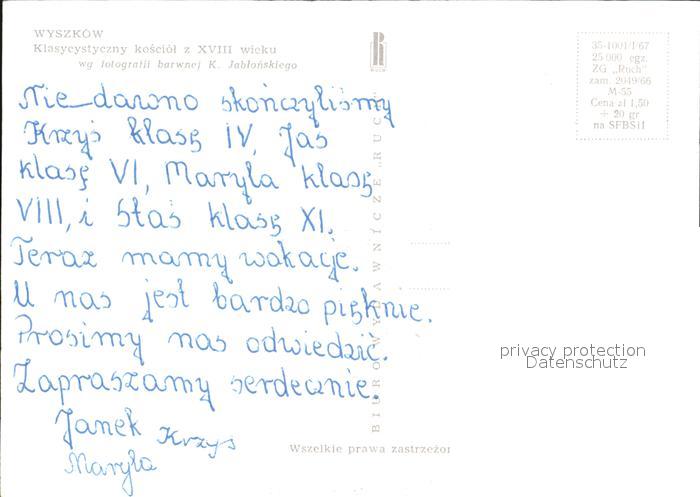 WYSZKÓW
Klasycystyczny kościół z XVIII wieku
wg fotografii barwnej K. Jabłońskiego
35-1001/I/67
25 000 egz.
ZG „Ruch"
zam. 2049/66
M-55
Cena zł 1,50
+ 20 gr
na SFBSiI
Nie dawno skończyliśmy
Krzyś klasę IV, Jaś
klasę VI, Maryla klasę
VIII, i Staś klasę XI.
Teraz mamy wakacje.
U nas jest bardzo pięknie.
Prosimy nas odwiedzić.
Zapraszamy serdecznie.
Janek Krzyś
Maryla
BIURO WYDAWNICZE „RUCH"
Wszelkie prawa zastrzeżon
privacy protection
Datenschutz